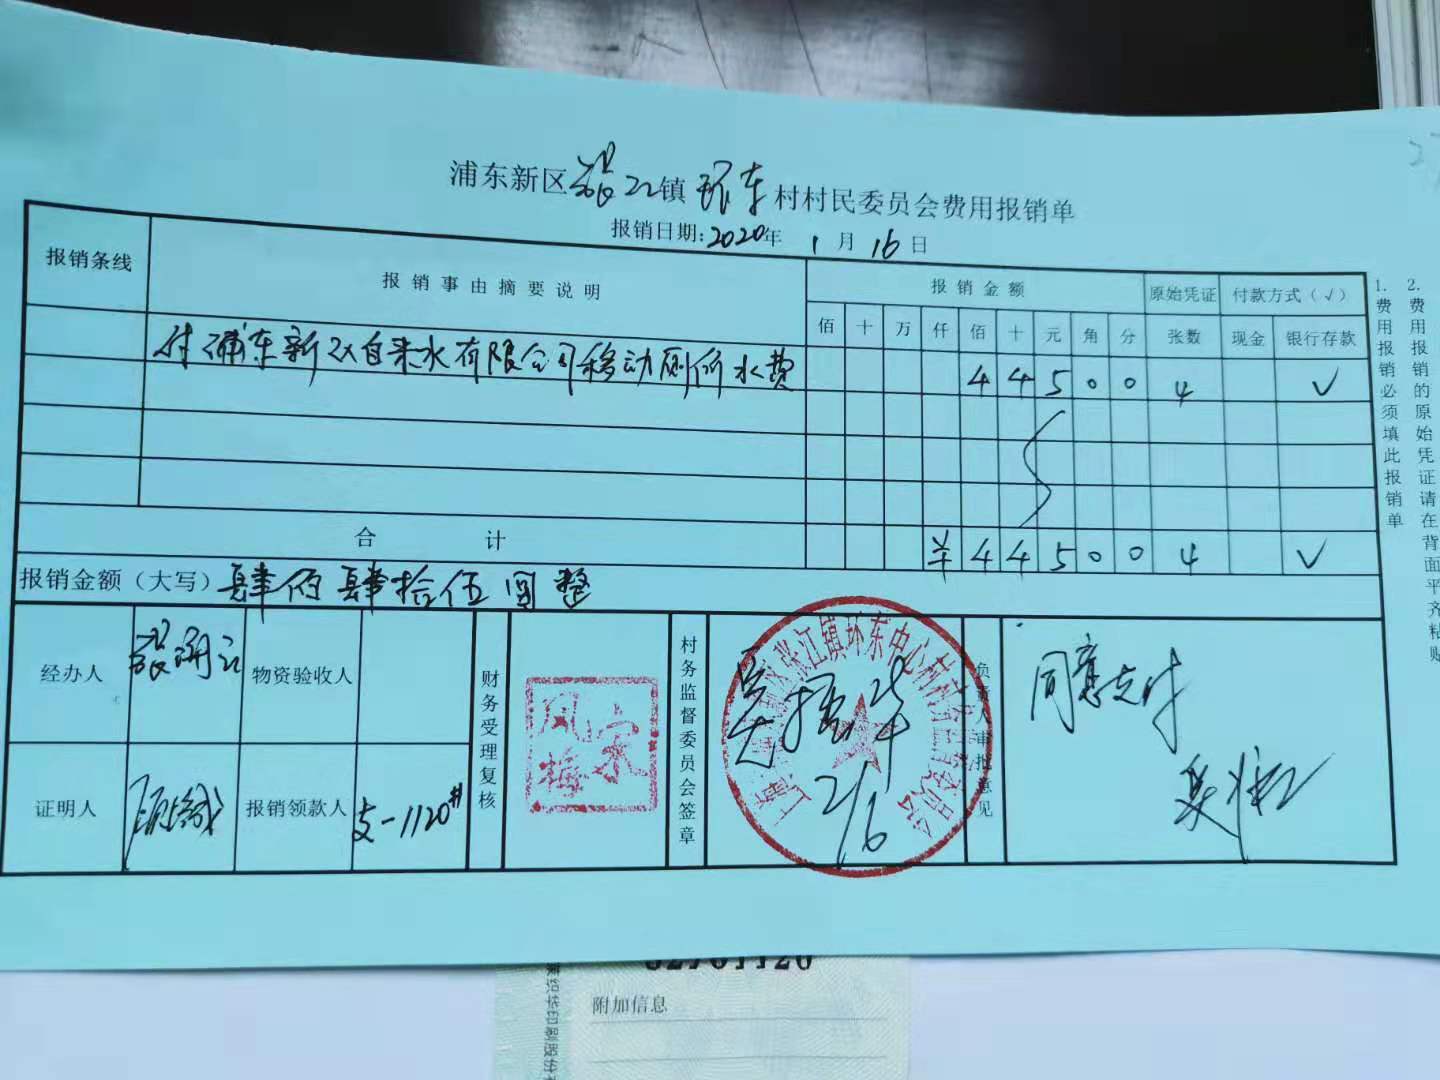 浦东新区张江镇环东村村民委员会费用报销单
报销日期:2020年 1月16日
报销条线 报销事由摘要说明 报销金额 原始凭证 付款方式(√)
佰 十 万 仟 佰 十 元 角 分 张数 现金 银行存款
付浦东新区自来水有限公司移动厕所水费 4 4 5 0 0 4 √
合 计 ¥ 4 4 5 0 0 4 √
报销金额(大写)肆佰肆拾伍圆整
经办人 物资验收人
证明人 报销领款人 支-1120#
财务受理复核
村务监督委员会签章 吴振华
2/6
张江镇环东中心村村务监督委员会
负责人审批意见 同意支付
1.费用报销必须填此报销单
2.费用报销的原始凭证请在背面平齐粘贴
附加信息